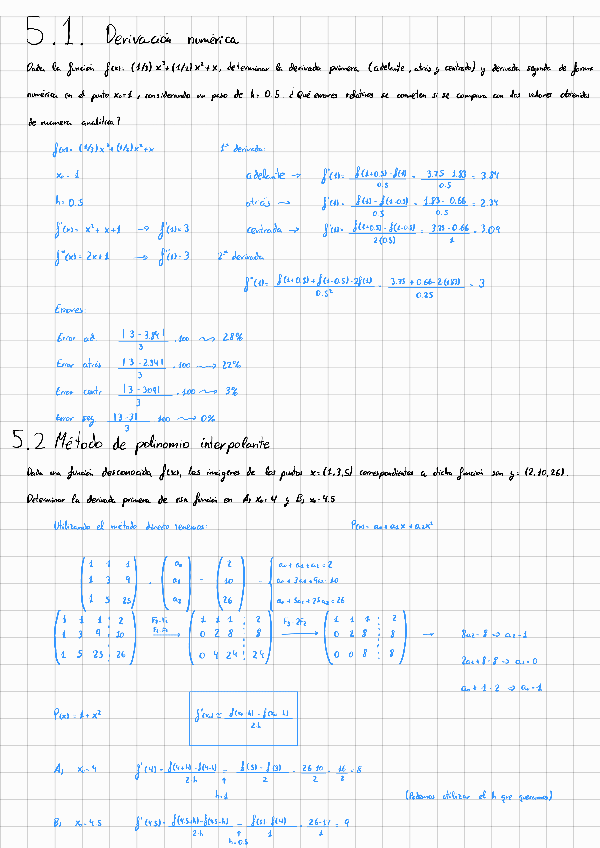 5.1. Derivación numérica
Dada la función f(x)= (1/3) x³+(1/2) x²+x, determinar la derivada primera (adelante, atrás y centrada) y derivada segunda de forma
numérica en el punto x₀=1, considerando un paso de h=0.5. ¿Qué errores relativos se cometen si se compara con los valores obtenidos
de manera analítica?
f(x)= (1/3) x³+(1/2)x²+x 1ª derivada:
x₀=1 adelante → f'(1)= (f(1+0.5)-f(1))/0.5 = (3.75-1.83)/0.5 = 3.84
h=0.5 atrás → f'(1)= (f(1)-f(1-0.5))/0.5 = (1.83-0.66)/0.5 = 2.34
f'(x)= x²+x+1 → f'(1)=3 centrada → f'(1)= (f(1+0.5)-f(1-0.5))/2(0.5) = (3.75-0.66)/1 = 3.09
f''(x)= 2x+1 → f''(1)=3 2ª derivada
f''(1)= (f(1+0.5)+f(1-0.5)-2f(1))/0.5² = (3.75+0.66-2(1.83))/0.25 = 3
Errores:
Error ad |3-3.84|/3 ·100 → 28%
Error atrás |3-2.34|/3 ·100 → 22%
Error centr |3-3.09|/3 ·100 → 3%
Error seg |3-3|/3 ·100 → 0%
5.2 Método de polinomio interpolante
Dada una función desconocida f(x), las imágenes de los puntos x=(1,3,5) correspondientes a dicha función son y=(2,10,26).
Determinar la derivada primera de esta función en A) x₀=4 y B) x₀=4.5
Utilizando el método directo tenemos: P(x)= a₀+a₁x+a₂x²
(1 1 1) (a₀) (2) { a₀+a₁+a₂=2
(1 3 9) · (a₁) = (10) = { a₀+3a₁+9a₂=10
(1 5 25) (a₂) (26) { a₀+5a₁+25a₂=26
(1 1 1 : 2) F₂-F₁ (1 1 1 : 2) F₃-2F₂ (1 1 1 : 2) 8a₂=8 ⇒ a₂=1
(1 3 9 : 10) → (0 2 8 : 8) → (0 2 8 : 8) → 2a₁+8=8 ⇒ a₁=0
(1 5 25 : 26) (0 4 24 : 24) (0 0 8 : 8) a₀+1=2 ⇒ a₀=1
P(x)=1+x² f'(x₀) ≈ (f(x₀+h)-f(x₀-h))/2·h
A) x₀=4 f'(4)= (f(4+h)-f(4-h))/2·h = (f(5)-f(3))/2 = (26-10)/2 = 16/2 = 8
h=1 (Podemos utilizar el h que queramos)
B) x₀=4.5 f'(4.5)= (f(4.5+h)-f(4.5-h))/2·h = (f(5)-f(4))/1 = (26-17)/1 = 9
h=0.5